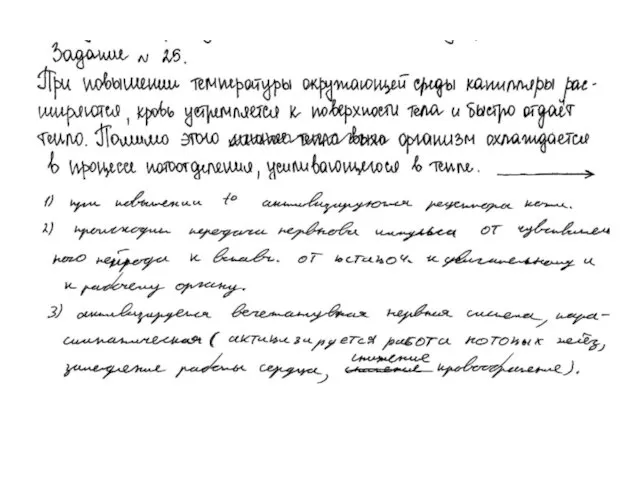 Задание № 25.
При повышении температуры окружающей среды капилляры рас-
ширяются, кровь устремляется к поверхности тела и быстро отдаёт
тепло. Помимо этого организм охлаждается
в процессе потоотделения, усиливающегося в тепле.
1) при повышении t° активизируются рецепторы кожи.
2) происходит передача нервного импульса от чувствител
ного нейрона к вставч. от вставоч. к двигательному и
к рабочему органу.
3) активизируется вегетативная нервная система, пара-
симпатическая (активизируется работа потовых желёз,
замедление работы сердца, снижение кровообращение).